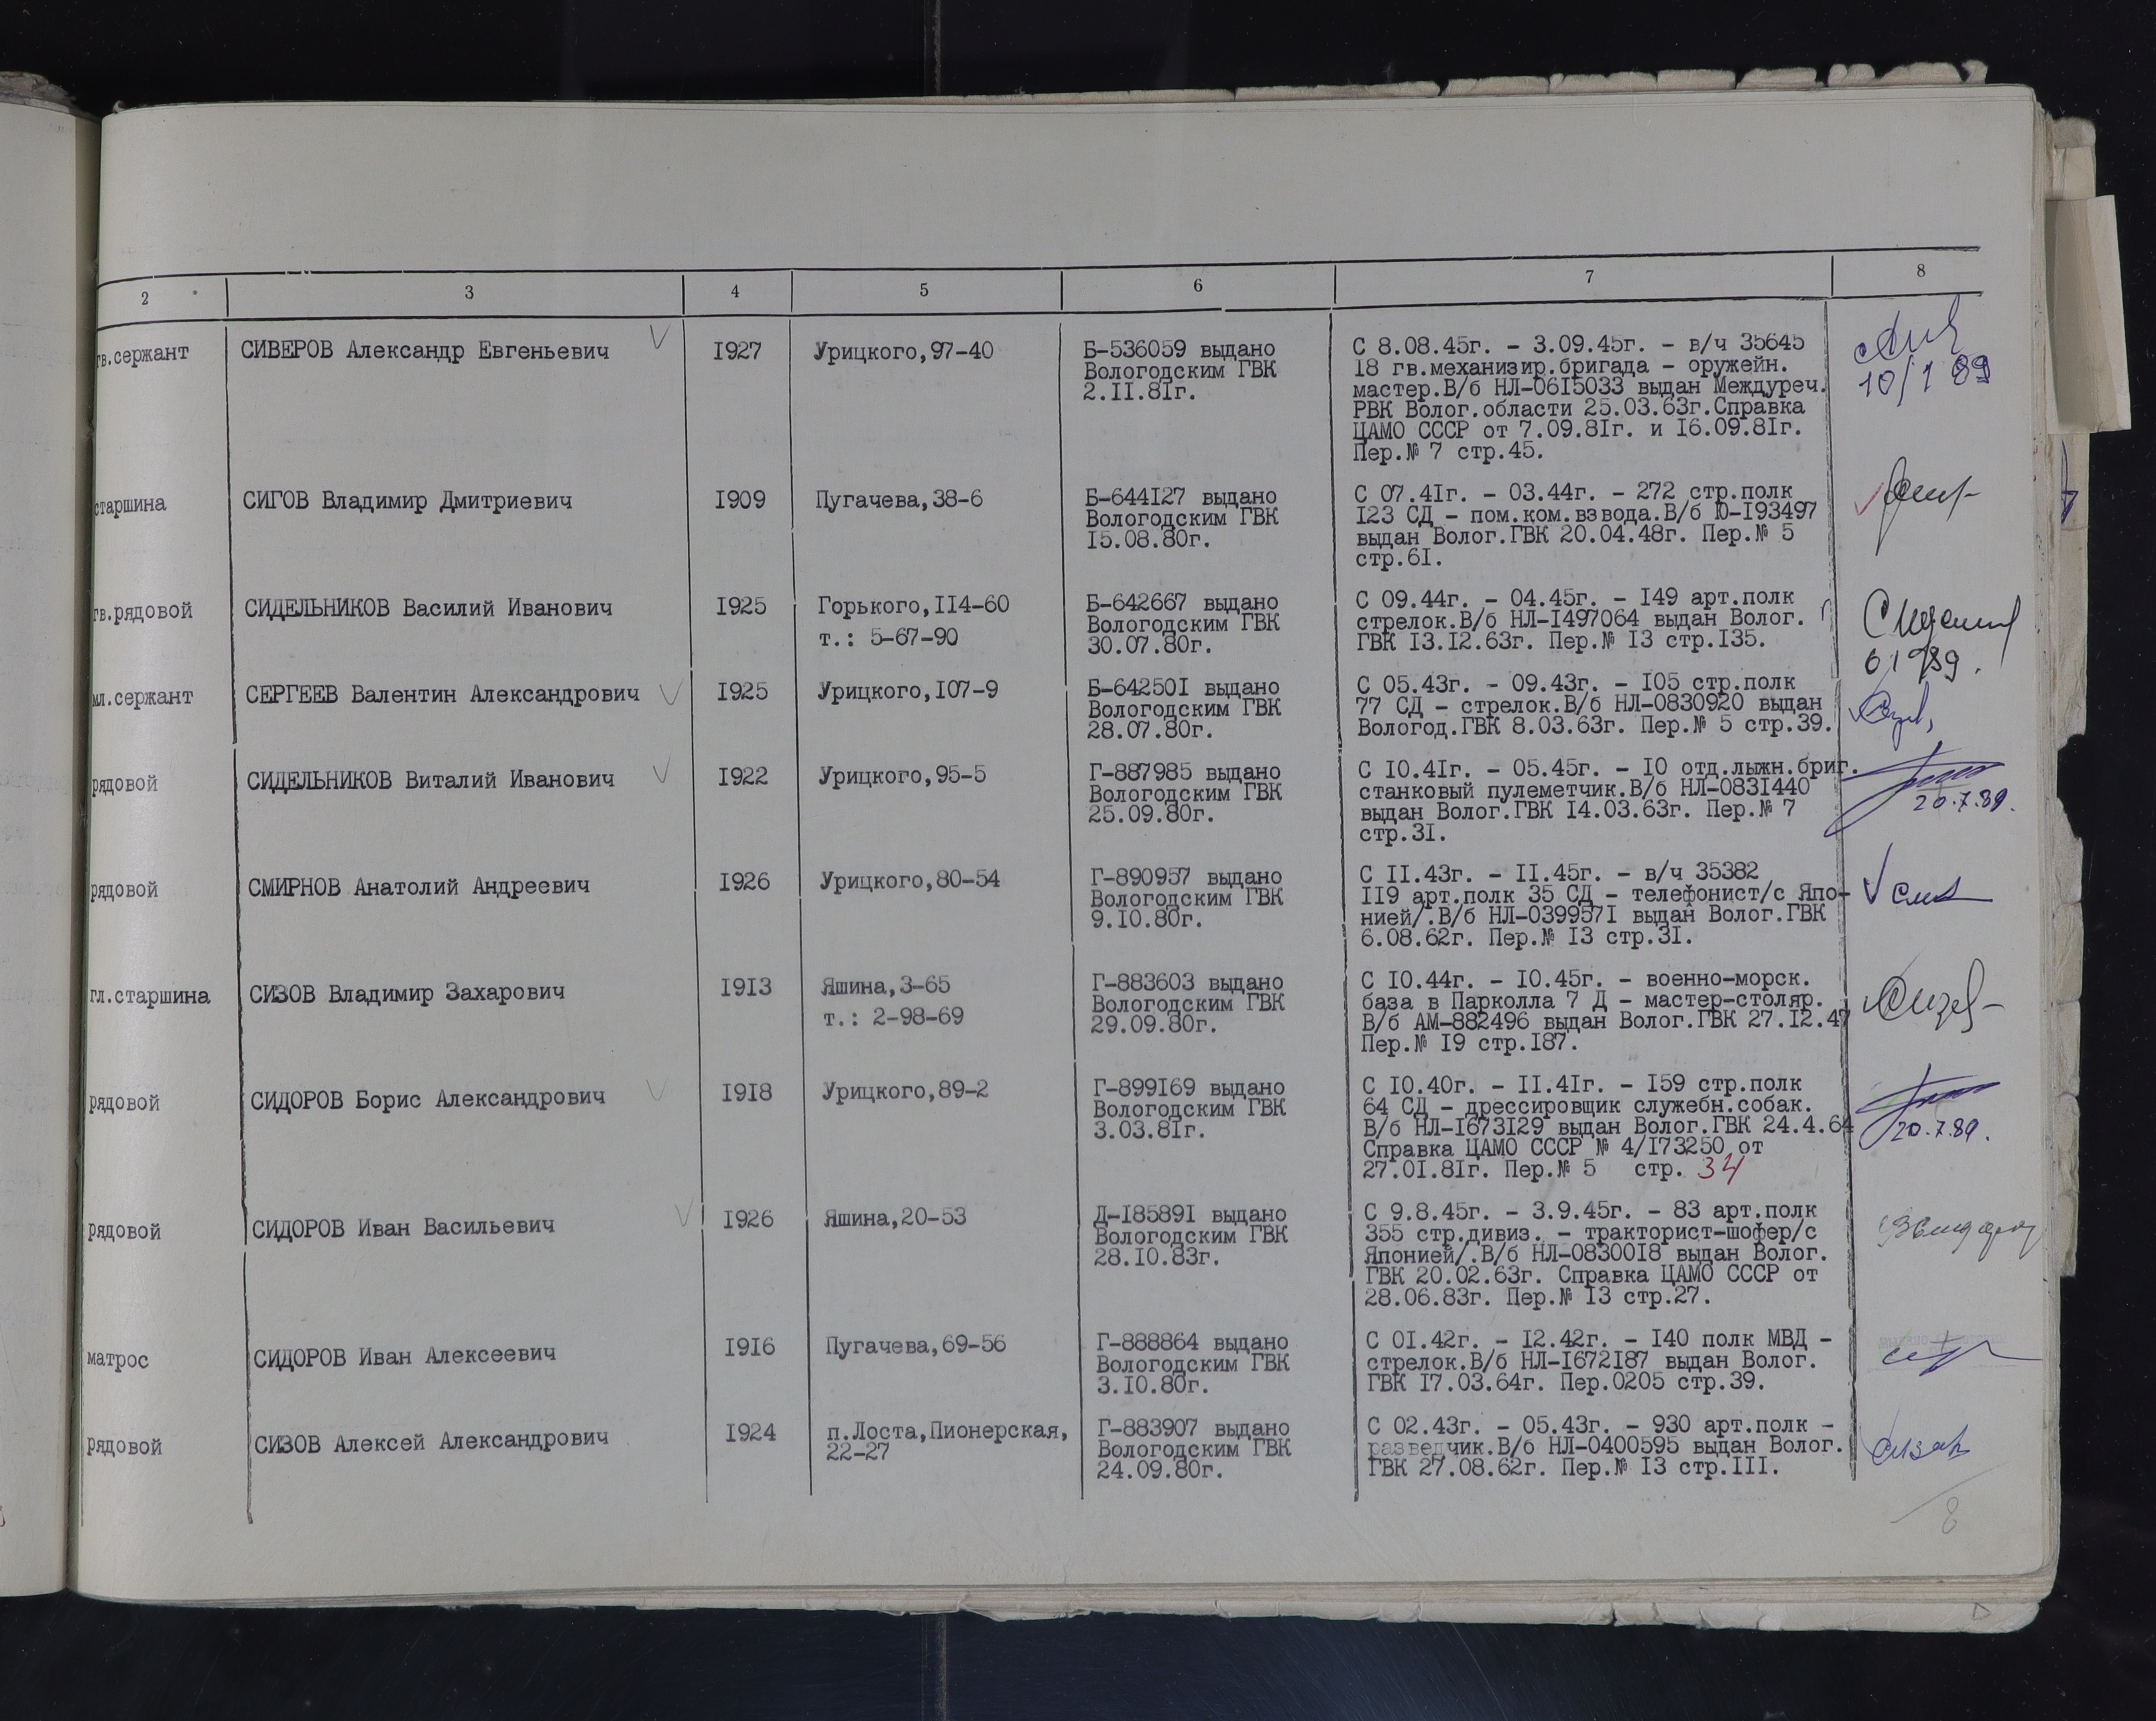 2 3 4 5 6 7 8
гв.сержант СИВЕРОВ Александр Евгеньевич I927 Урицкого,97-40 Б-536059 выдано С 8.08.45г. - 3.09.45г. - в/ч 35645
Вологодским ГВК I8 гв.механизир.бригада - оружейн.
2.II.8Iг. мастер.В/б НЛ-06I5033 выдан Междуреч.
10/1 89
РВК Волог.области 25.03.63г.Справка
ЦАМО СССР от 7.09.8Iг. и I6.09.8Iг.
Пер.№ 7 стр.45.
старшина СИГОВ Владимир Дмитриевич I909 Пугачева,38-6 Б-644I27 выдано С 07.4Iг. - 03.44г. - 272 стр.полк
Вологодским ГВК I23 СД - пом.ком.взвода.В/б Ю-I93497
I5.08.80г. выдан Волог.ГВК 20.04.48г. Пер.№ 5
стр.6I.
гв.рядовой СИДЕЛЬНИКОВ Василий Иванович I925 Горького,II4-60 Б-642667 выдано С 09.44г. - 04.45г. - I49 арт.полк
Вологодским ГВК стрелок.В/б НЛ-I497064 выдан Волог.
т.: 5-67-90 30.07.80г. ГВК I3.I2.63г. Пер.№ I3 стр.I35.
мл.сержант СЕРГЕЕВ Валентин Александрович I925 Урицкого,I07-9 Б-64250I выдано С 05.43г. - 09.43г. - I05 стр.полк
Вологодским ГВК 77 СД - стрелок.В/б НЛ-0830920 выдан
28.07.80г. Вологод.ГВК 8.03.63г. Пер.№ 5 стр.39.
рядовой СИДЕЛЬНИКОВ Виталий Иванович I922 Урицкого,95-5 Г-887985 выдано С I0.4Iг. - 05.45г. - I0 отд.лыжн.бриг.
Вологодским ГВК станковый пулеметчик.В/б НЛ-083I440
20.7.89.
25.09.80г. выдан Волог.ГВК I4.03.63г. Пер.№ 7
стр.3I.
рядовой СМИРНОВ Анатолий Андреевич I926 Урицкого,80-54 Г-890957 выдано С II.43г. - II.45г. - в/ч 35382
Вологодским ГВК II9 арт.полк 35 СД - телефонист/с Япо-
9.I0.80г. нией/.В/б НЛ-039957I выдан Волог.ГВК
6.08.62г. Пер.№ I3 стр.3I.
гл.старшина СИЗОВ Владимир Захарович I9I3 Яшина,3-65 Г-883603 выдано С I0.44г. - I0.45г. - военно-морск.
Вологодским ГВК база в Парколла 7 Д - мастер-столяр.
т.: 2-98-69 29.09.80г. В/б АМ-882496 выдан Волог.ГВК 27.I2.47
Пер.№ I9 стр.I87.
рядовой СИДОРОВ Борис Александрович I9I8 Урицкого,89-2 Г-899I69 выдано С I0.40г. - II.4Iг. - I59 стр.полк
Вологодским ГВК 64 СД - дрессировщик служебн.собак.
3.03.8Iг. В/б НЛ-I673I29 выдан Волог.ГВК 24.4.64
20.7.89.
Справка ЦАМО СССР № 4/I73250 от
27.0I.8Iг. Пер.№ 5 стр. 34
рядовой СИДОРОВ Иван Васильевич I926 Яшина,20-53 Д-I8589I выдано С 9.8.45г. - 3.9.45г. - 83 арт.полк
Вологодским ГВК 355 стр.дивиз. - тракторист-шофер/с
28.I0.83г. Японией/.В/б НЛ-08300I8 выдан Волог.
ГВК 20.02.63г. Справка ЦАМО СССР от
28.06.83г. Пер.№ I3 стр.27.
матрос СИДОРОВ Иван Алексеевич I9I6 Пугачева,69-56 Г-888864 выдано С 0I.42г. - I2.42г. - I40 полк МВД -
Вологодским ГВК стрелок.В/б НЛ-I672I87 выдан Волог.
3.I0.80г. ГВК I7.03.64г. Пер.0205 стр.39.
рядовой СИЗОВ Алексей Александрович I924 п.Лоста,Пионерская, Г-883907 выдано С 02.43г. - 05.43г. - 930 арт.полк -
22-27 Вологодским ГВК разведчик.В/б НЛ-0400595 выдан Волог.
24.09.80г. ГВК 27.08.62г. Пер.№ I3 стр.III.
8